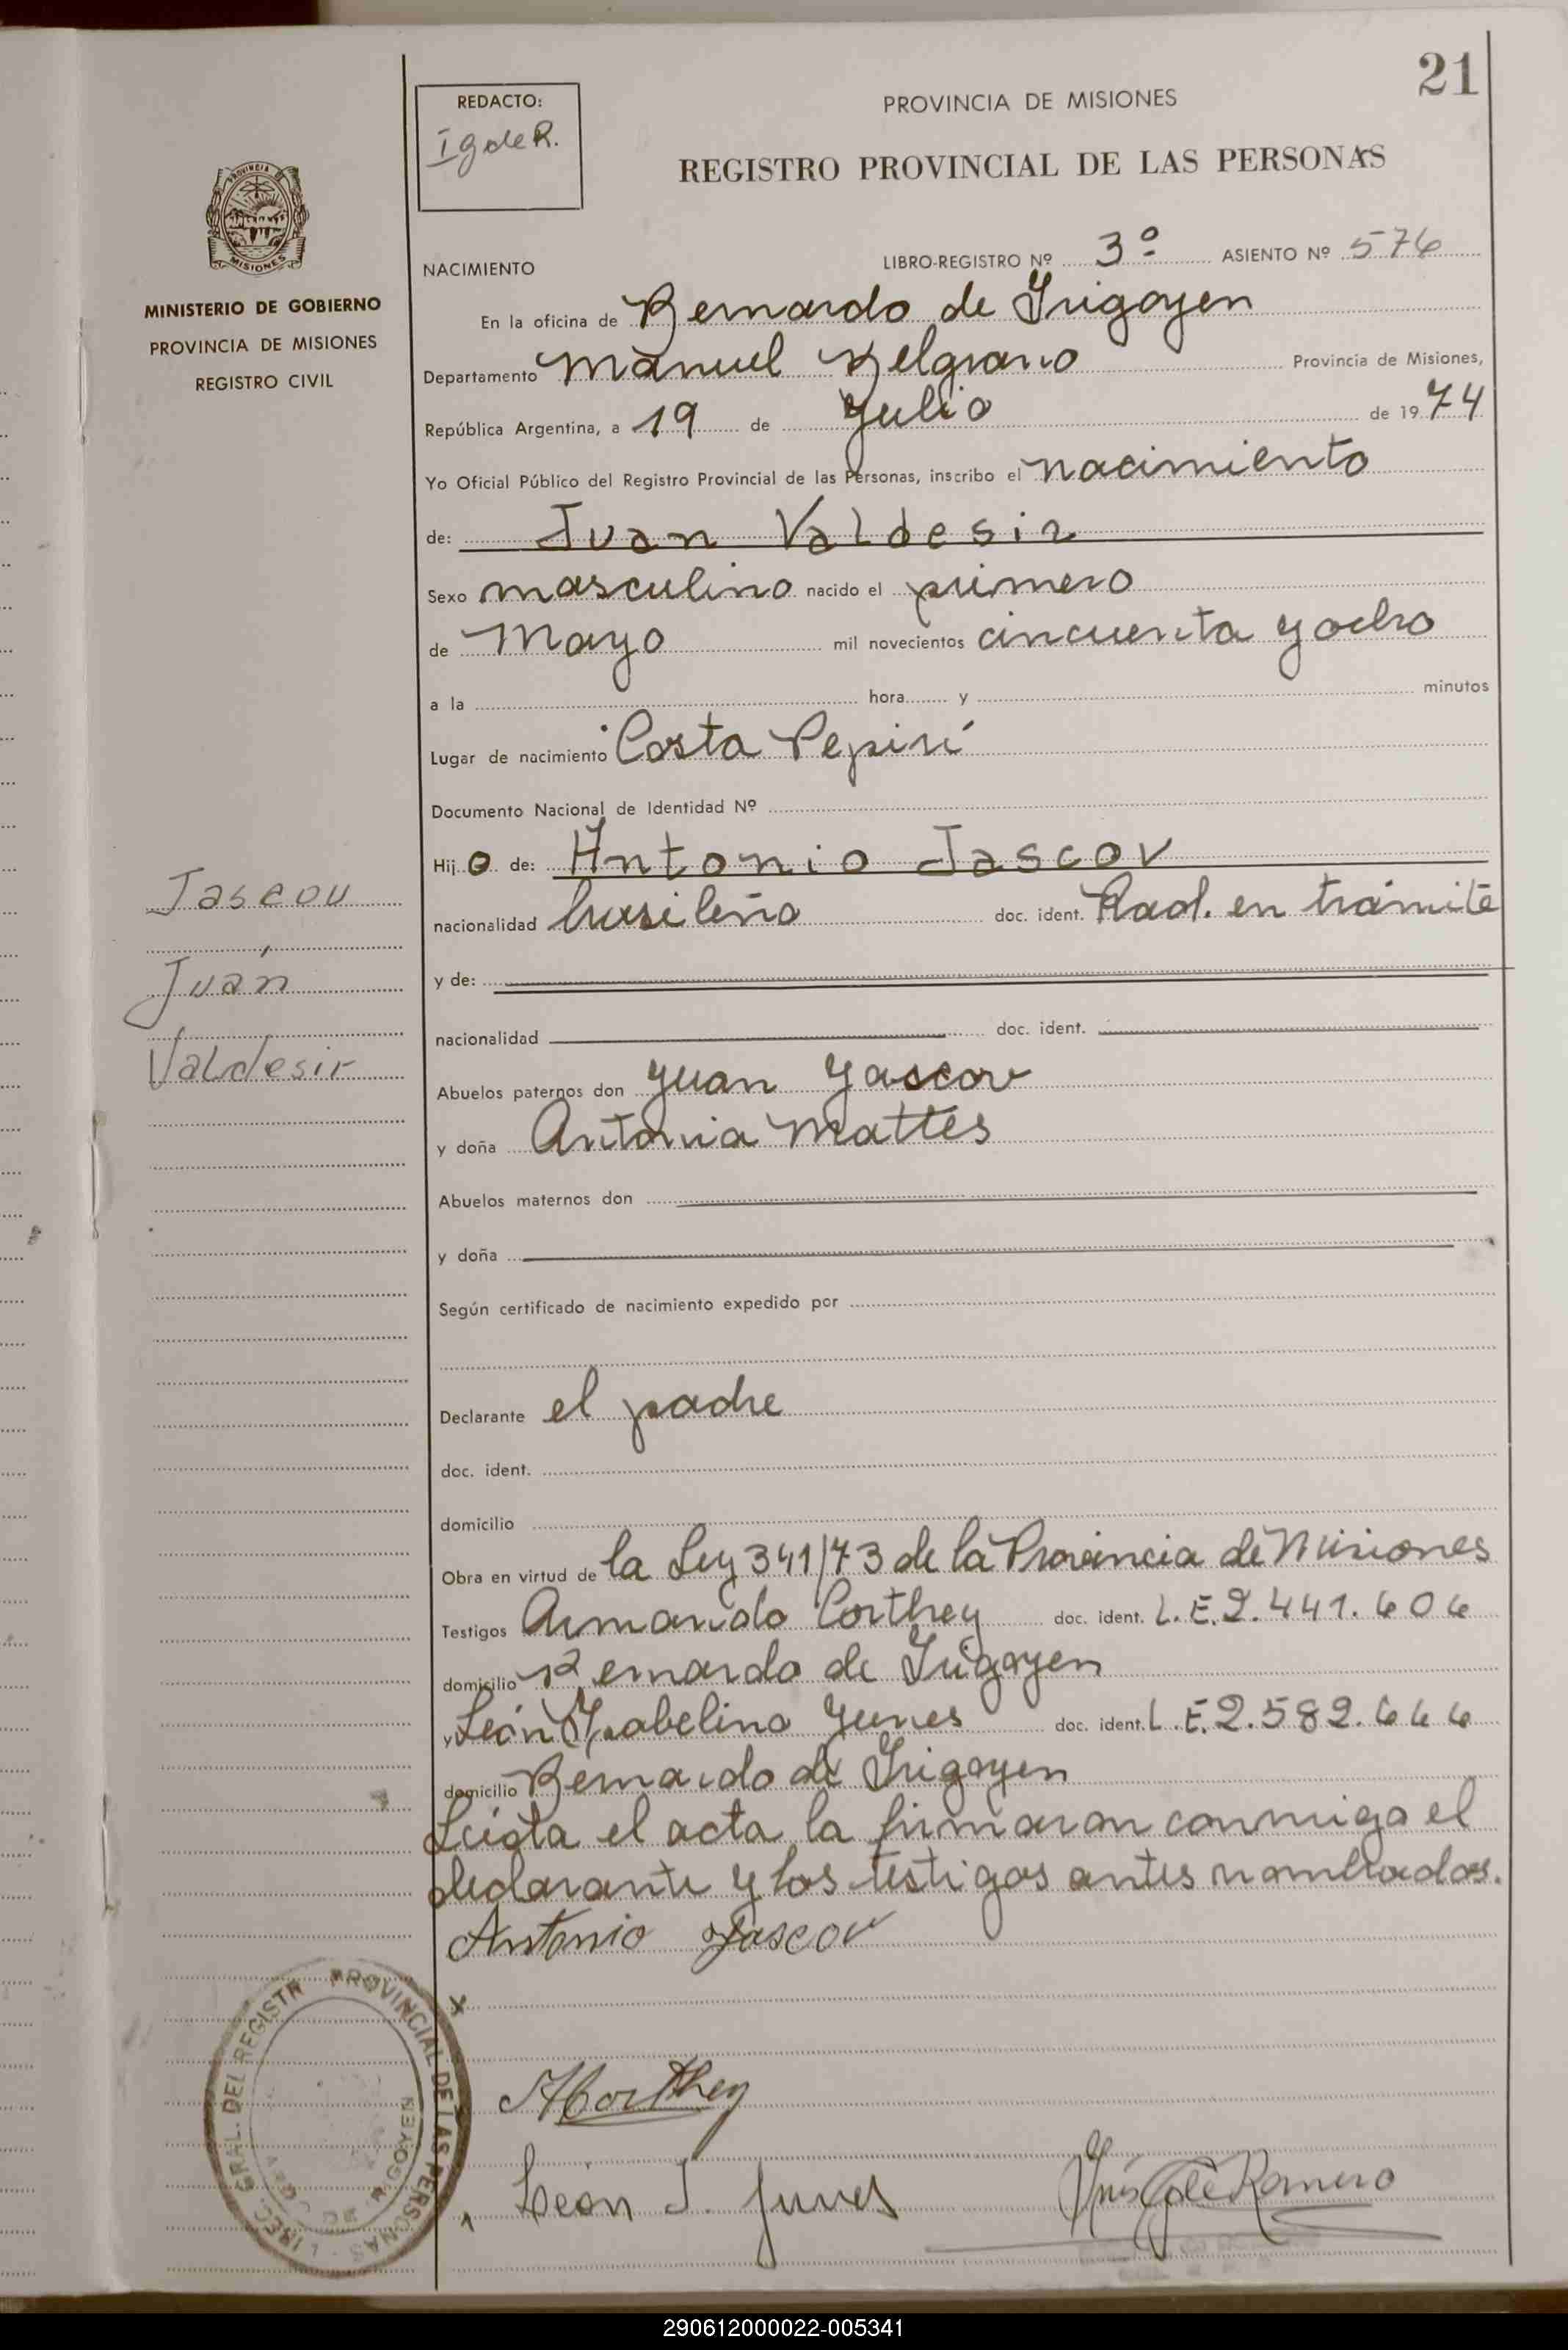 21
REDACTO:
I g de R.
PROVINCIA DE MISIONES
REGISTRO PROVINCIAL DE LAS PERSONAS
PROVINCIA DE
MISIONES
MINISTERIO DE GOBIERNO
PROVINCIA DE MISIONES
REGISTRO CIVIL
NACIMIENTO
LIBRO-REGISTRO Nº 3º ASIENTO Nº 576
En la oficina de Bernardo de Irigoyen
Departamento Manuel Belgrano Provincia de Misiones,
República Argentina, a 19 de Julio de 1974
Yo Oficial Público del Registro Provincial de las Personas, inscribo el nacimiento
de: Juan Valdesir
Sexo masculino nacido el primero
de Mayo mil novecientos cincuenta y ocho
a la hora y minutos
Lugar de nacimiento Costa Pepirí
Documento Nacional de Identidad Nº
Hijo de: Antonio Jascov
nacionalidad brasileño doc. ident. Rad. en trámite
y de:
nacionalidad doc. ident.
Jascov
Juan
Valdesir
Abuelos paternos don Juan Jascov
y doña Antonia Mattes
Abuelos maternos don
y doña
Según certificado de nacimiento expedido por
Declarante el padre
doc. ident.
domicilio
Obra en virtud de la Ley 341/73 de la Provincia de Misiones
Testigos Armando Corthey doc. ident. L.E. 2.441.606
domicilio Bernardo de Irigoyen
y León Ysabelino Junes doc. ident. L.E. 2.582.666
domicilio Bernardo de Irigoyen
Leída el acta la firmaron conmigo el
declarante y los testigos antes nombrados.
Antonio Jascov
x
ACorthey
León I. Junes
Inés G de Romero
DIREC. GRAL. DEL REGISTR PROVINCIAL DE LAS PERSONAS
290612000022-005341